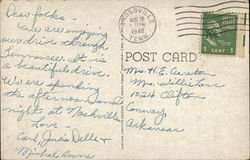 Dear folks -
We are enjoying
our drive through
Tennessee. It is
a beautiful drive.
We are spending
the afternoon and
night at Nashville
Love -
Carl, Julia Della &
Michel Anne
CROSSVILLE
AUG 16
1948
TENN.
1 CENT 1
POST CARD
Mrs H. E. Cureton
Mrs. Willis
1024 Clifton
Conway
Arkansas